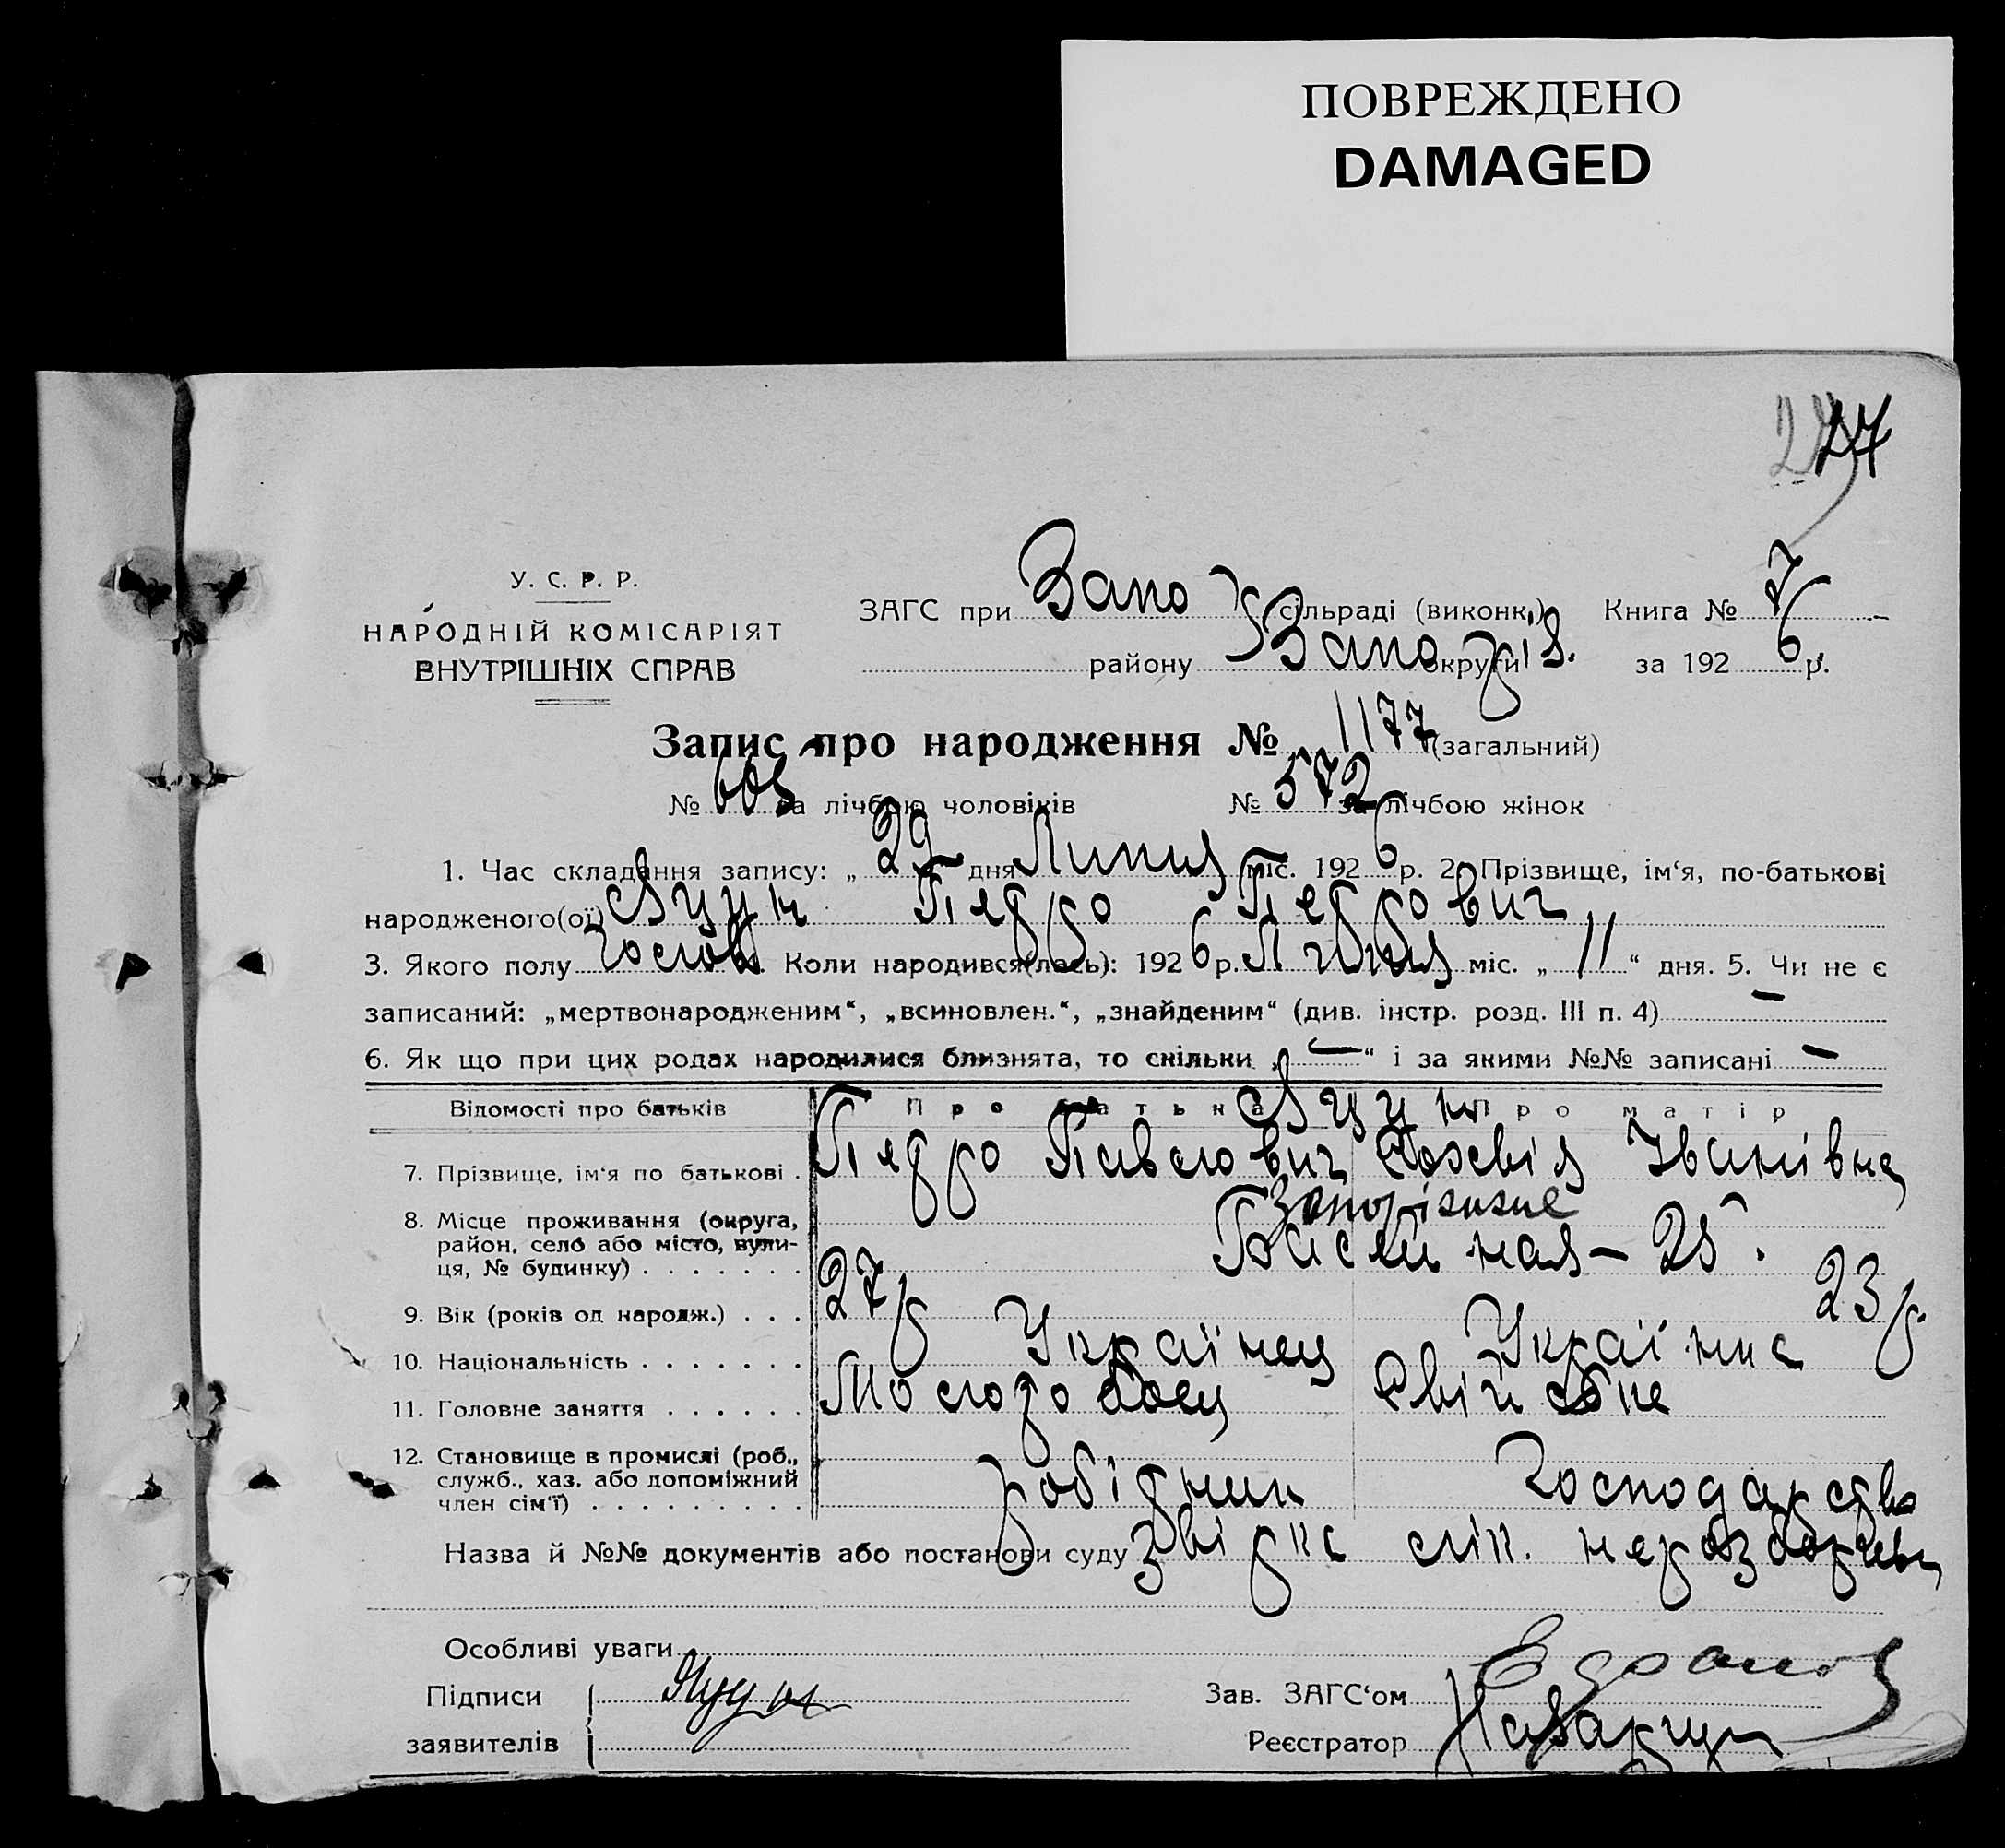 ПОВРЕЖДЕНО
DAMAGED
У. С. Р. Р.
НАРОДНІЙ КОМІСАРІЯТ
ВНУТРІШНІХ СПРАВ
ЗАГС при Запо сільраді (виконк.) Книга № 7
району Запоріз. округи за 1926 р.
Запис про народження № 1177 (загальний)
№ 605 за лічбою чоловіків № 572 за лічбою жінок
1. Час складання запису: „29“ дня Липня міс. 1926 р. 2. Прізвище, ім‘я, по-батькові
народженого(ої) Яцун Педро Педрович
3. Якого полу Чолов 4. Коли народився(лась): 1926 р. Липня міс. „11“ дня. 5. Чи не є
записаний: „мертвонародженим“, „всиновлен.“, „знайденим“ (див. інстр. розд. III п. 4) —
6. Як що при цих родах народилися близнята, то скільки „—“ і за якими №№ записані —
Відомості про батьків Про батька Про матір
Яцун
7. Прізвище, ім‘я по батькові . Педро Павлович Іванівна
8. Місце проживання (округа, район, село або місто, вулиця, № будинку) . . . . . . . Запоріжжє
– 25
9. Вік (років од народж.) . . . 27 р 23 р.
10. Національність . . . . . . . Українец Українка
11. Головне заняття . . . . . . Свійське
12. Становище в промислі (роб., служб., хаз. або допоміжний член сім‘ї) . . . . . . . . . робідник господарство
Назва й №№ документів або постанови суду Звідка лік.
Особливі уваги
Підписи Яцун Зав. ЗАГС‘ом
заявителів Реєстратор